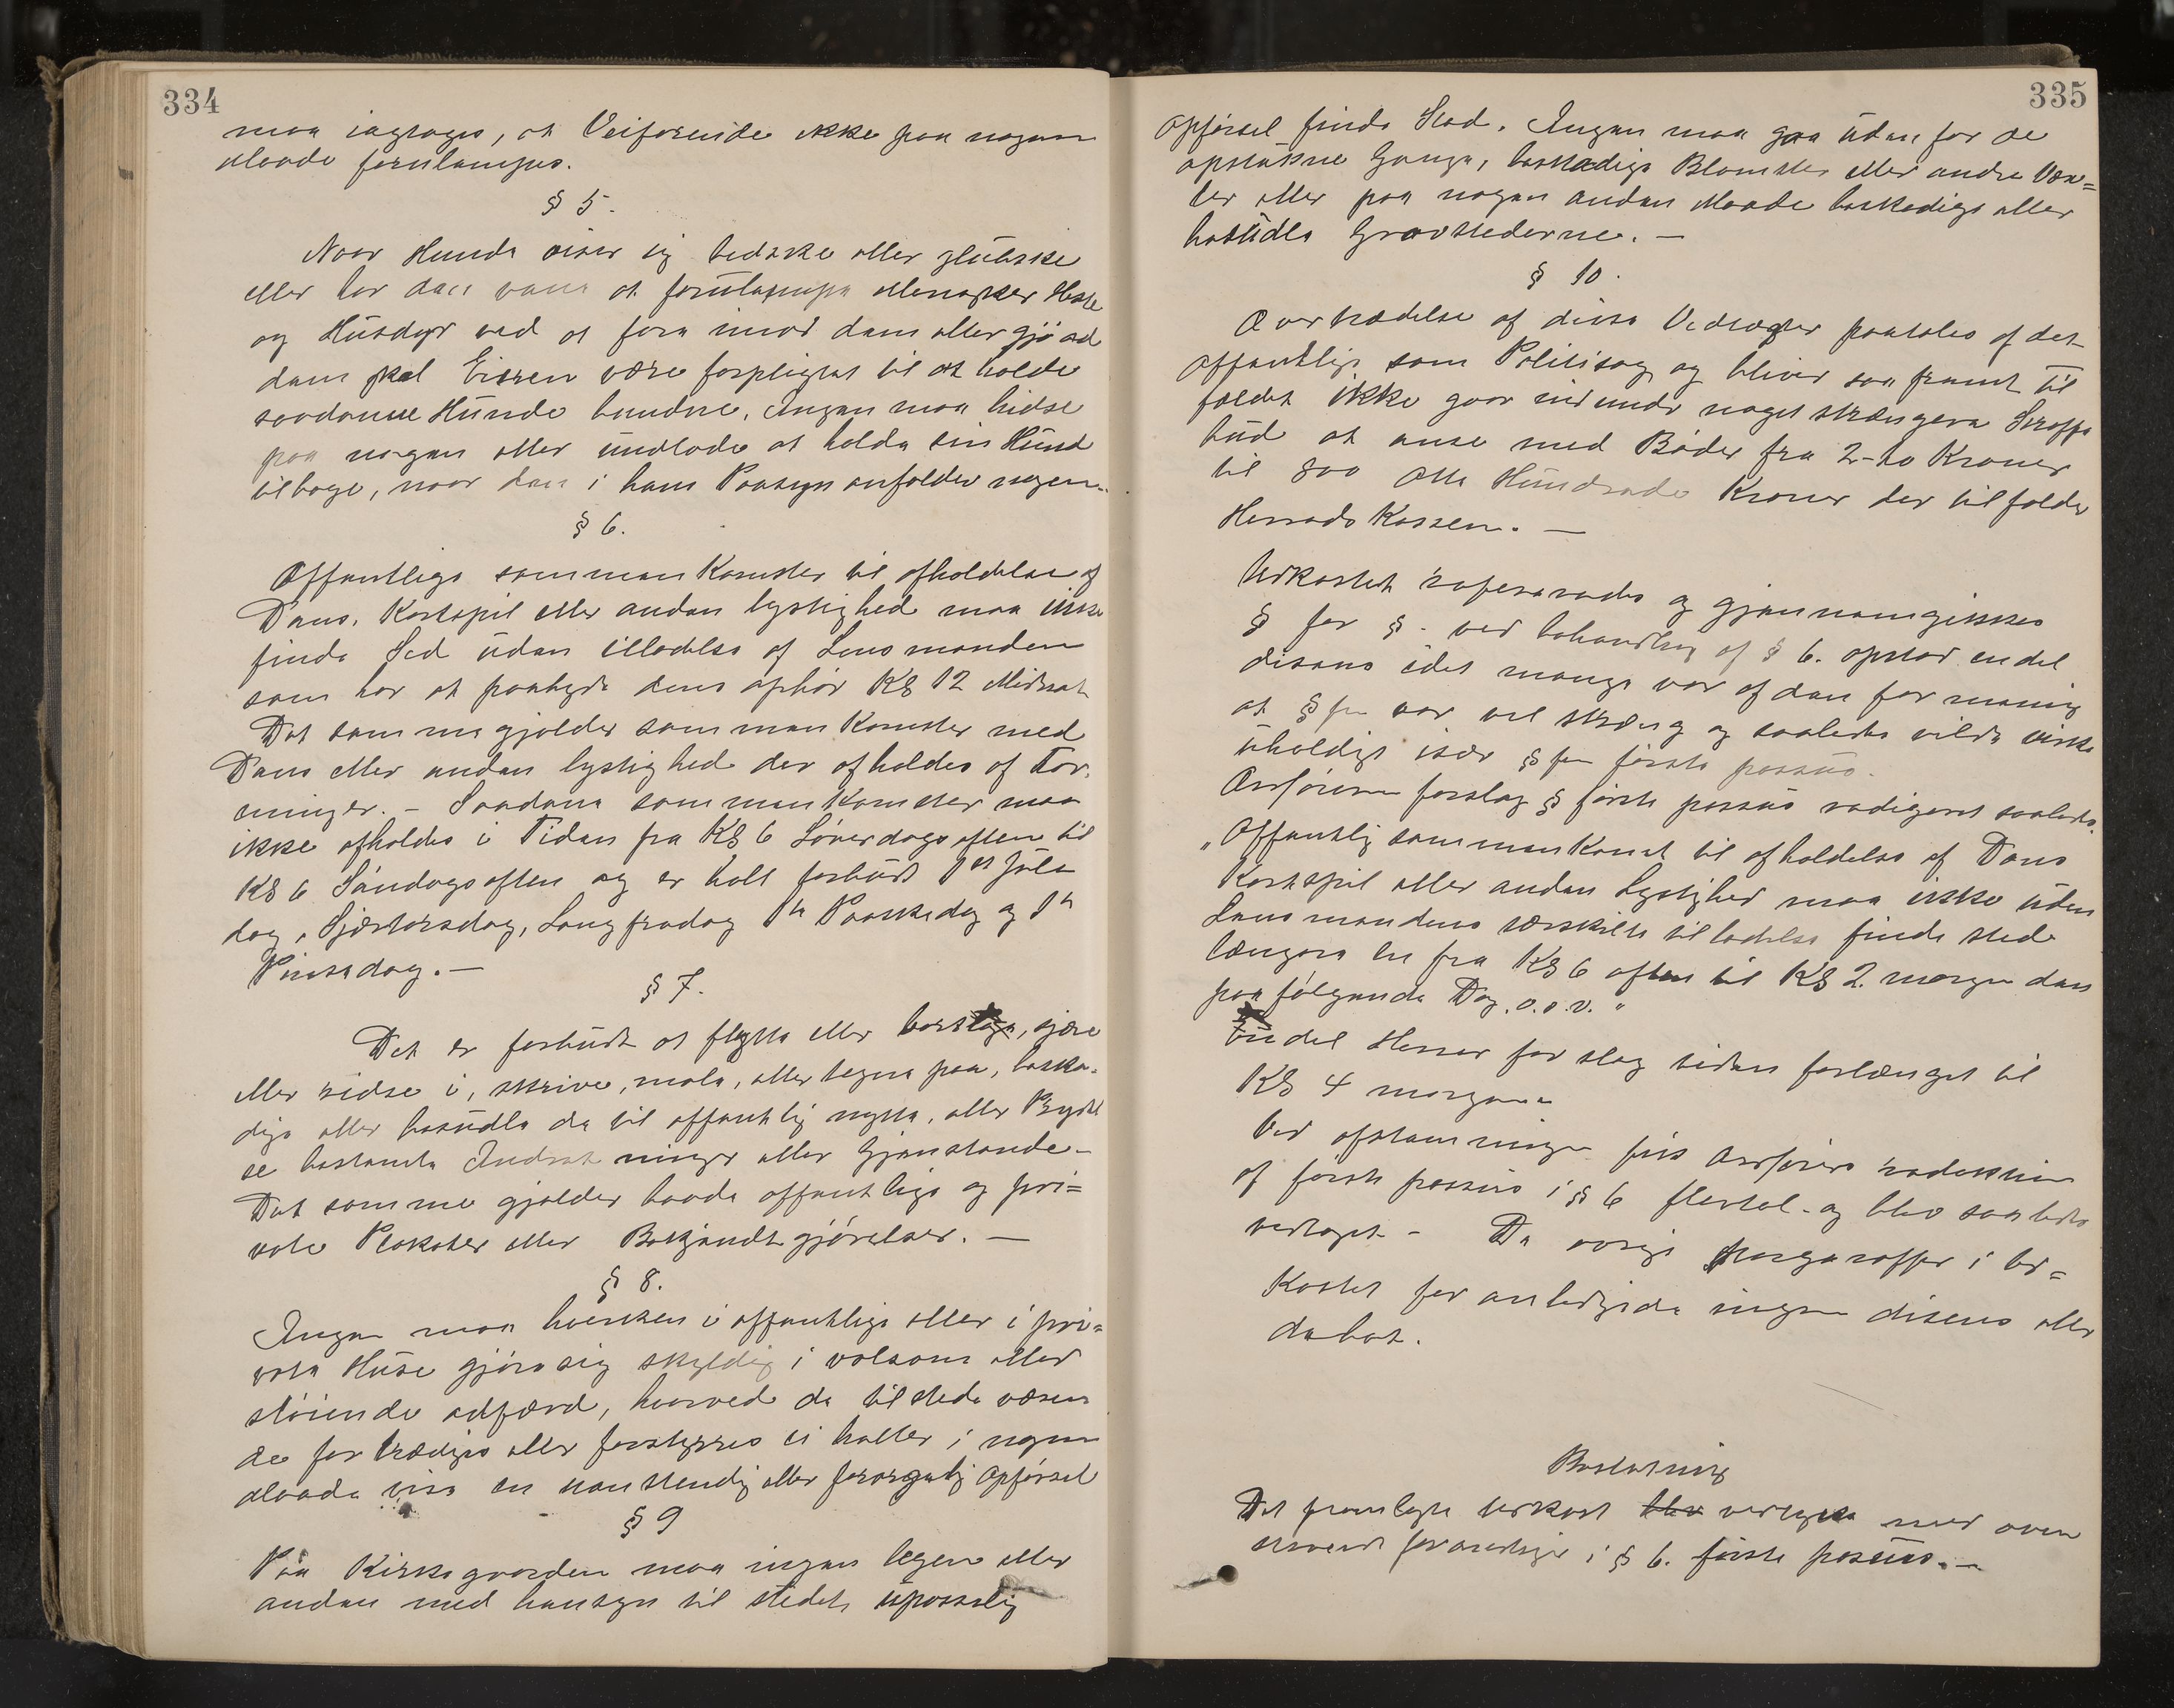 334
maa iagtages, at Veifarende ikke paa nogen
Maade forulempes.
§ 5.
Naar Hunde viser sig bedske eller glubske
eller har den vane at forulempe Mennesker Heste
og Husdyr ved at fare imod dem eller gjø ad
dem skal Eieren være forpligtet til at holde
saadanne Hunde bundne, Ingen maa hidse
paa nogen eller undlade at holde sin Hund
tilbage, naar den i hans Paasyn anfalder nogen.
§ 6.
Offentlige sammenkomster til afholdelse af
Dans, Kortspil eller anden lystighed maa ikke
finde Sted uden tilladelse af Lensmanden
som har at paabyde dens ophør Kl 12 Midnat
Det samme gjælder sammenkomster med
Dans eller anden lystighed der afholdes af For-
eninger. - Saadane sammenkomster maa
ikke afholdes i Tiden fra Kl 6 Løverdags aften til
Kl 6 Søndags aften og er helt forbudt 1st Jule
dag, Skjærtorsdag, Langfredag 1te Paaskedag og 1te
Pinsedag. —
§ 7.
Det er forbudt at flytte eller borttage, skjære
eller ridse i, skrive, male, eller tegne paa, beska-
dige eller besudle de til offentlig nytte, eller Prydel
se bestemte Indretninger eller Gjenstande -
Det samme gjælder baade offentlige og pri=
vate Plakater eller Bekjendtgjørelser. —
§ 8.
Ingen maa hverken i offentlige eller i pri=
vate Huse gjøre sig skyldig i volsom eller
støiende adfærd, hvorved de tilstede væren
de fortrædiges eller forstyrres ei heller i nogen
Maade vise en uanstendig eller forargelig Opførsel
§ 9
Paa Kirkegaarden maa ingen legen eller
anden med hensyn til stedet upasselig
335
Opførsel finde Sted. Ingen maa gaa uden for de
opstukne Gange, beskadige Blomster eller andre Væx=
ter eller paa nogen anden Maade beskadige eller
besudle Gravstederne. —
§ 10.
Overtrædelse af disse Vedtægter paatales af det
Offentlige som Politisag og bliver saa fremt til
fældet ikke gaar ind under noget strængere Straffe
bud at anse med Bøder fra 2 - to Kroner
til 800 Otte Hundrede Kroner der tilfalder
Herreds Kassen. —
Udkastet refereredes og gjennemgikkes
§ for §. ved behandling af § 6. opstod en del
disens idet mange var af den for mening
at §fen var vel streng og saaledes vilde virke
uheldigt især §fen første passus.
Ordføreren forslag § første passus redigeret saaledes.
„Offentlig sammenkomst til afholdelse af Dans
Kortspil eller anden Lystighed maa ikke uden
Lensmandens særskilte tilladelse finde sted
længere en fra Kl 6 aften til Kl 2. morgen den
paafølgende Dag. o.s.v. "
Endel Herrer for slag tiden forlænget til
Kl 4 morgenen
Ved afstemningen fik Ordførers redaktion
af første passus i § 6 flertal - og blev saaledes
vedtaget - De øvrige Paragraffer i Ud=
kastet for anledigede ingen disens eller
debat.
Beslutning
Det fremlagte Udkast blev vedtages med oven
nævnte forandringer i § 6. første passus. —